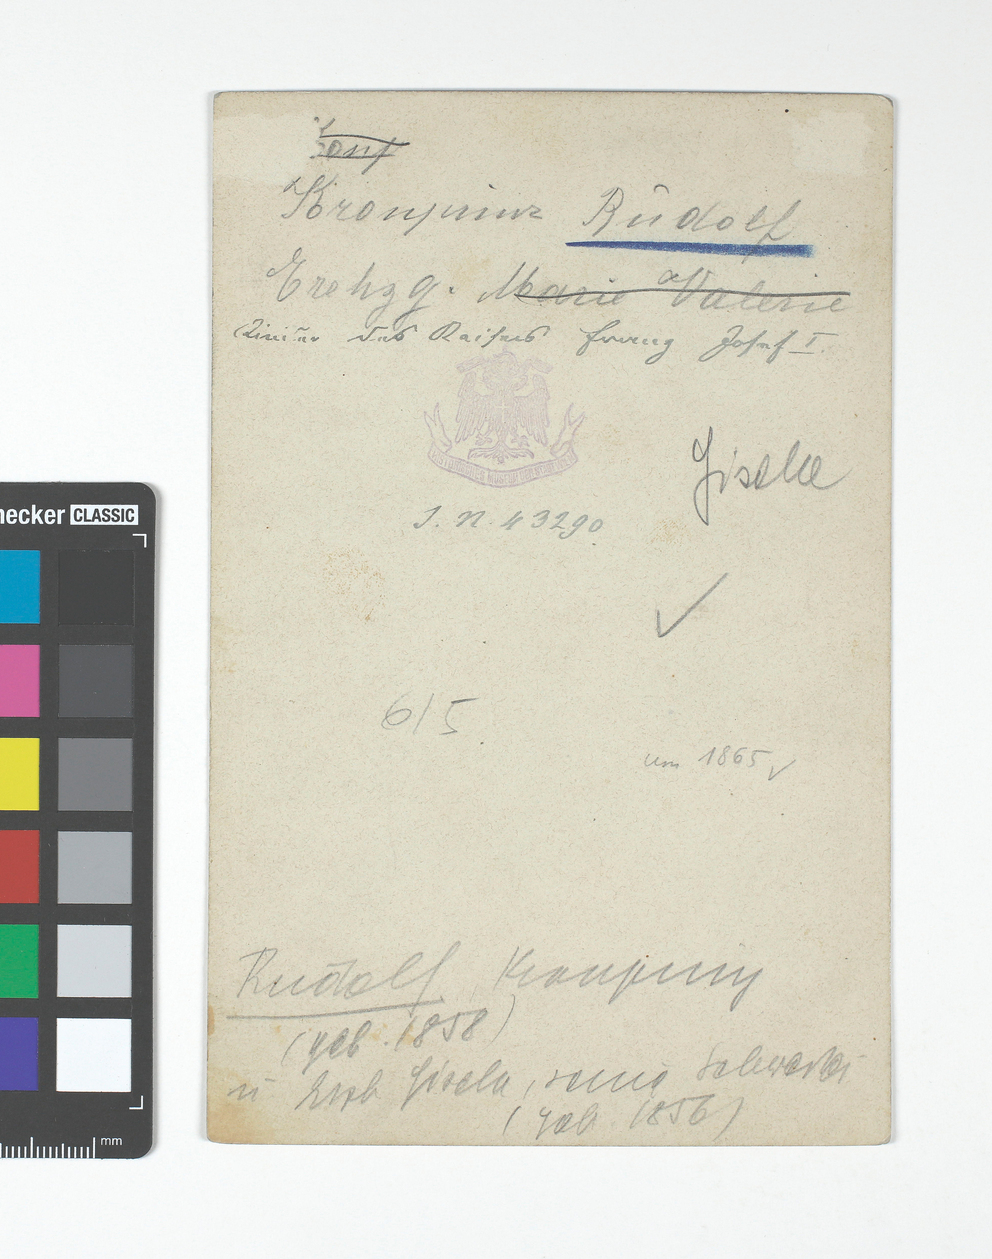 Kronprinz Rudolf
Erzhzg. Marie Valerie
Kinder des Kaisers Franz Josef I.
HISTORISCHES MUSEUM DER STADT WIEN
Gisela
I. N. 43290
6/5
um 1865
Rudolf Kronprinz
(geb. 1858)
u Erzh Gisela, seine Schwester
(geb. 1856)
necker CLASSIC
mm